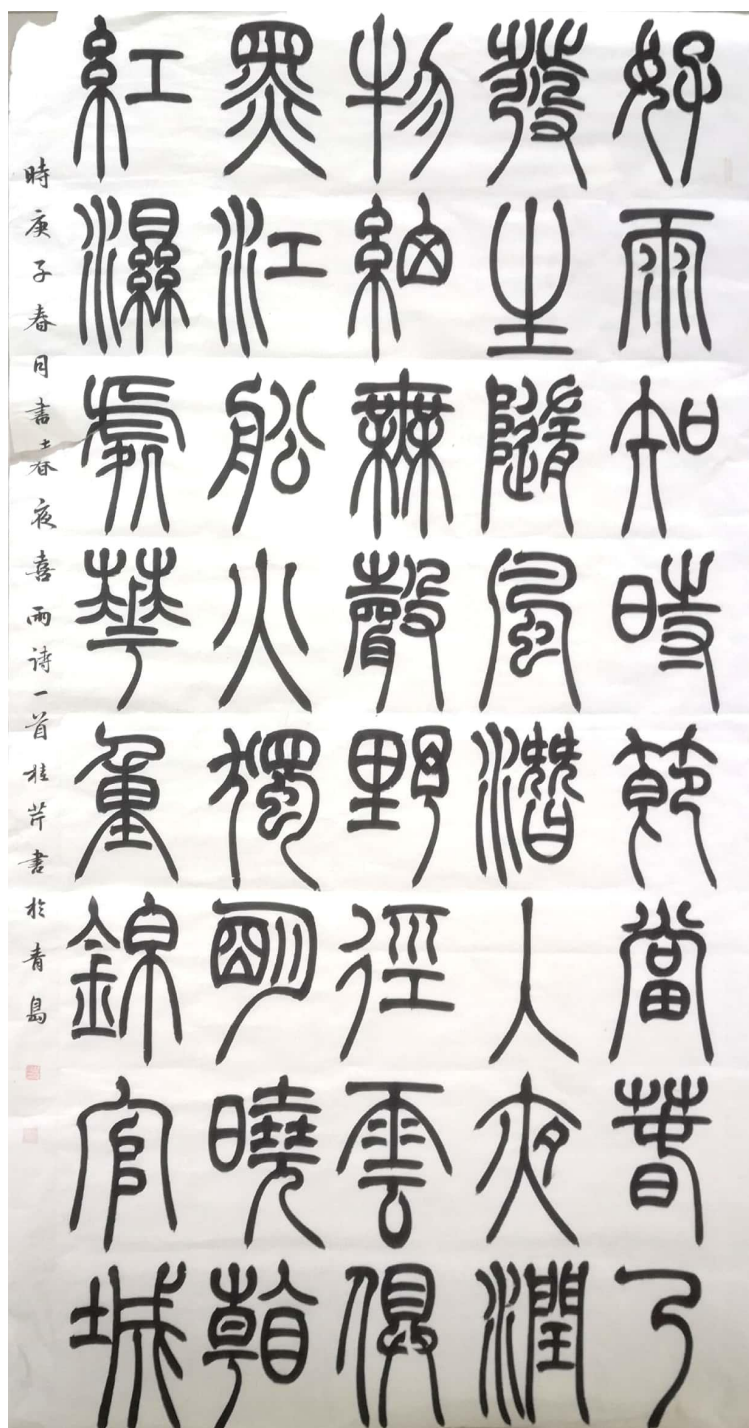 好雨知時節當春乃
發生隨風潛入夜潤
物細無聲野徑雲俱
黑江船火獨明曉看
紅濕處華重錦官城
時庚子春月書春夜喜雨诗一首桂芹書於青島